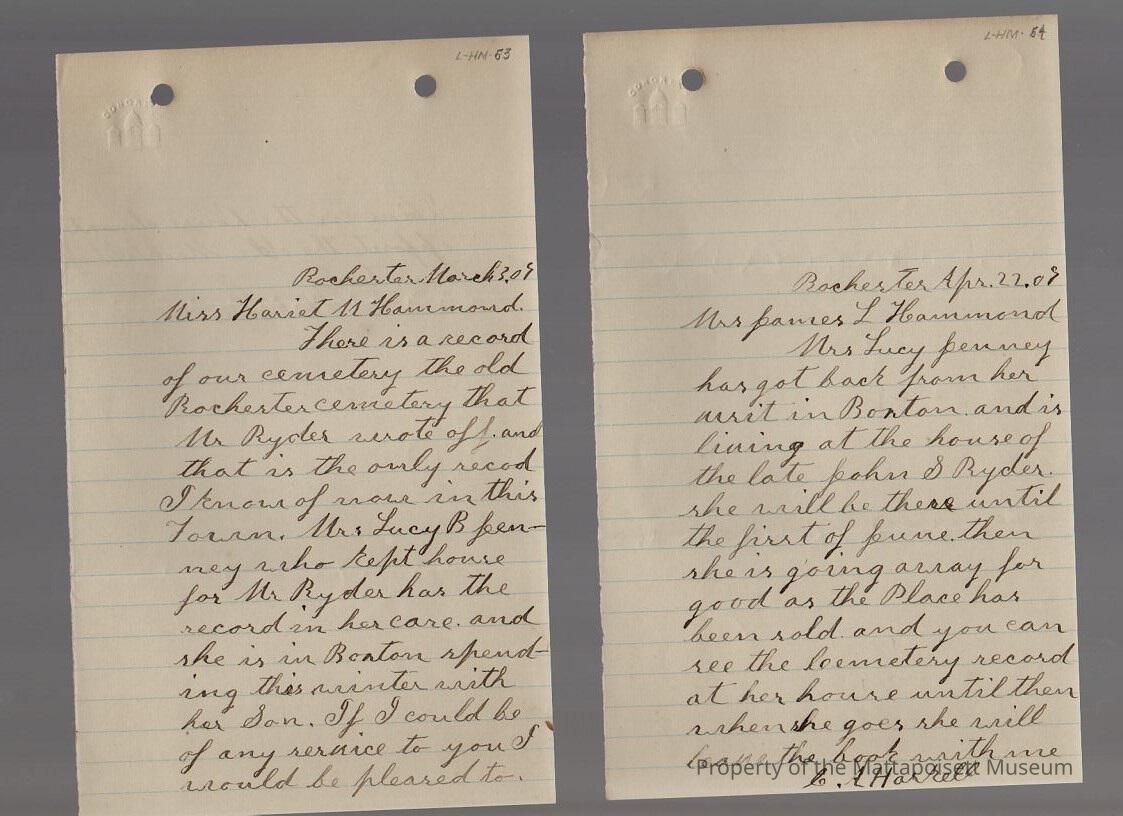 L-HM-53
CONGRESS
Rochester March 3. 09
Miss Hariet M Hammond.
There is a record
of our cemetery the old
Rochester cemetery that
Mr Ryder wrote off. and
that is the only recod
I know of now in this
Town. Mrs Lucy B Jen-
ney who kept house
for Mr Ryder has the
record in her care. and
she is in Boston spend-
ing this winter with
her Son. If I could be
of any service to you I
would be pleased to.
L-HM-54
CONGRESS
Rochester Apr. 22. 09
Mrs James L Hammond
Mrs Lucy Jenney
has got back from her
visit in Boston. and is
living at the house of
the late John S Ryder.
she will be there until
the first of June. then
she is going away for
good as the Place has
been sold. and you can
see the Cemetery record
at her house until then
when she goes she will
leave the book with me
Property of the Mattapoisett Museum